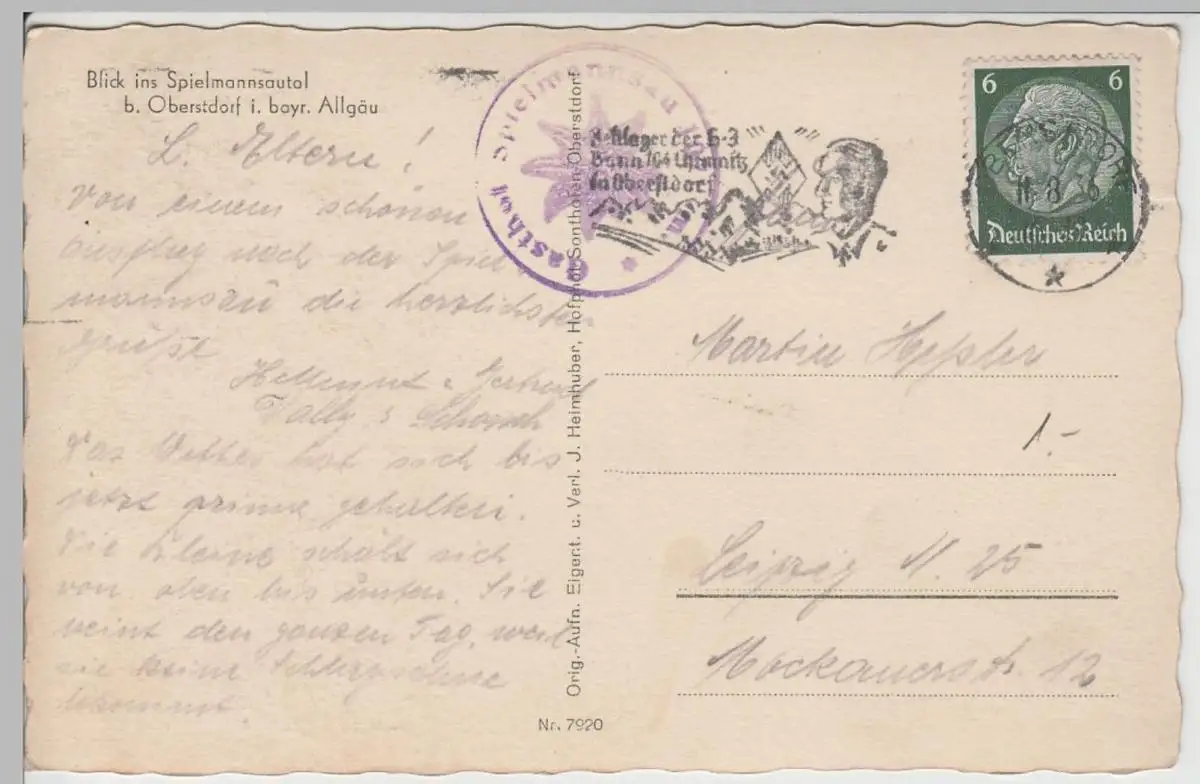 Blick ins Spielmannsautal
b. Oberstdorf i. bayr. Allgäu
L. Eltern!
Von einem schönen
Ausflug nach der Spiel
mannsau die herzlichsten
Grüße
Hellmut u. Gerhard
Tilly u. Schorsch
Das Wetter hat sich bis
jetzt prima gehalten.
Die Kleine schält sich
von oben bis unten. Sie
weint den ganzen Tag, weil
sie keine
bekommt.
Gasthof Spielmannsau
lager der
Bann 104 Chemnitz
in Oberstdorf
6 6
Deutsches Reich
11. 8
Orig.-Aufn. Eigent. u. Verl. J. Heimhuber, Hofphot. Sonthofen/Oberstdorf
Nr. 7920
Martin
1.-
Leipzig N. 25
Mockauerstr. 12